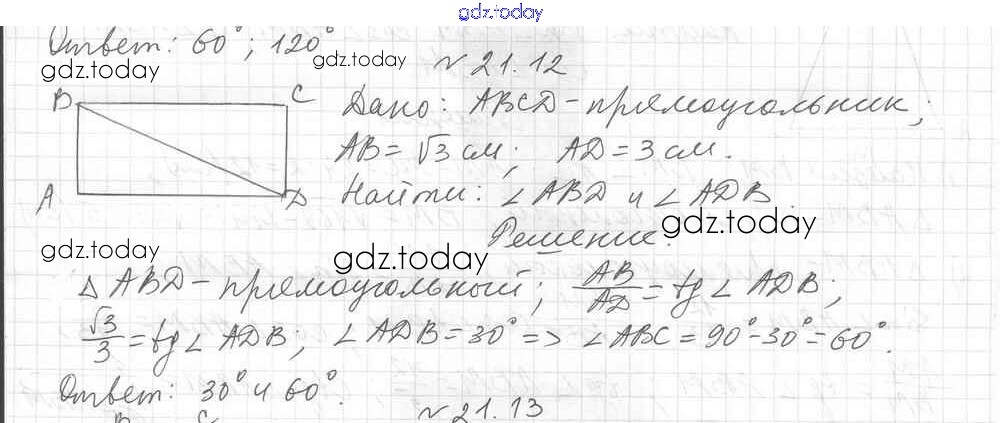 gdz.today
Ответ: 60°; 120°
gdz.today gdz.today
№ 21.12
B C Дано: ABCD - прямоугольник;
AB = √3 см; AD = 3 см.
A D Найти: ∠ ABD и ∠ ADB.
gdz.today
Решение:
gdz.today gdz.today
△ ABD - прямоугольный; AB/AD = tg ∠ ADB;
√3/3 = tg ∠ ADB; ∠ ADB = 30° => ∠ ABC = 90° - 30° = 60°.
Ответ: 30° и 60°.
№ 21.13
B C